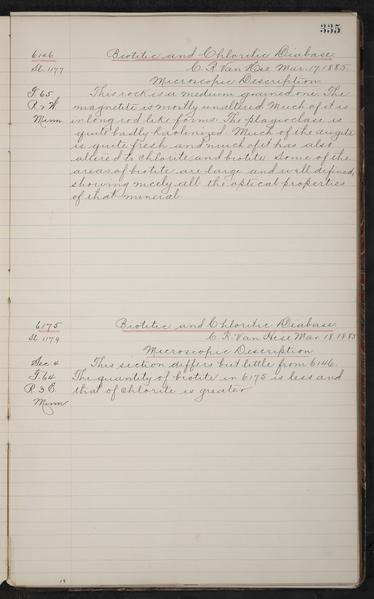 335
6146 Biotitic and Chloritic Diabase
Sl. 1177 C. R. Van Hise Mar. 17, 1885.
Microscopic Description
T. 65 This rock is a medium grained one. The
R 2 W magnetite is mostly unaltered. Much of it is
Minn in long rod like forms. The plagioclase is
quite badly kaolinized. Much of the augite
is quite fresh and much of it has also
altered to chlorite and biotite. Some of the
areas of biotite are large and well defined,
showing nicely all the optical properties
of that mineral.
6175 Biotitic and Chloritic Diabase
Sl. 1179 C. R. Van Hise Mar. 18, 1885
Microscopic Description
Sec 4 This section differs but little from 6146.
T. 64 The quantity of biotite in 6175 is less and
R 3 E that of chlorite is greater.
Minn